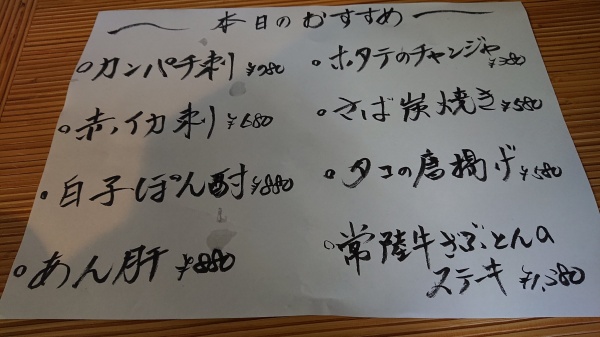 本日のおすすめ
カンパチ刺 ¥780
赤イカ刺 ¥680
白子ぽん酎 ¥880
あん肝 ¥880
ホタテのチャンジャ ¥380
さば炭焼き ¥580
タコの唐揚げ ¥580
常陸牛ざぶとんの
ステキ ¥1,380